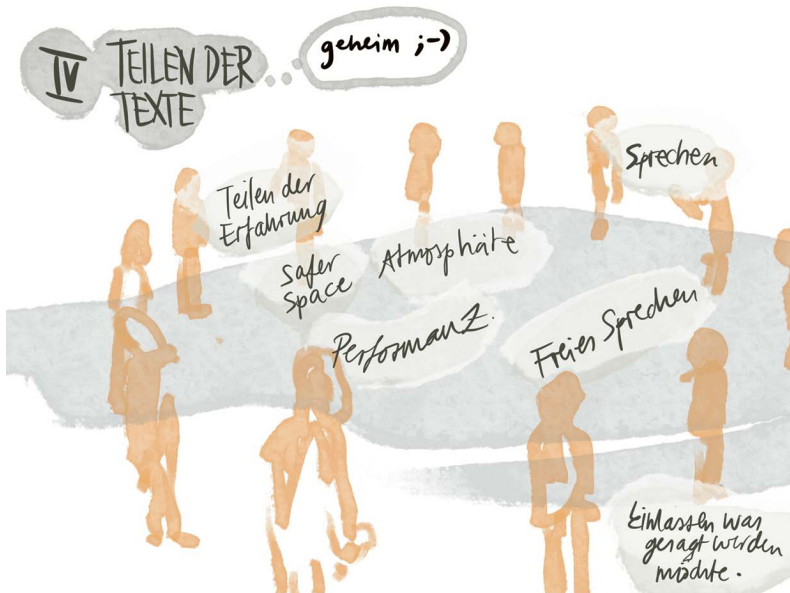 IV TEILEN DER
TEXTE
geheim ;-)
Sprechen
Teilen der
Erfahrung
Safer
Space
Atmosphäte
Performanz.
Freies Sprechen
Einlassen was
gesagt werden
möchte.